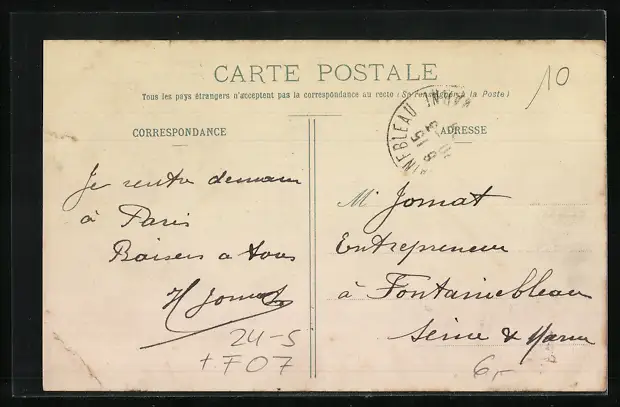 10
CARTE POSTALE
Tous les pays étrangers n'acceptent pas la correspondance au recto (Se renseigner à la Poste)
CORRESPONDANCE
Je rentre demain
à Paris
Baisers a tous
H Jomat
24-5
+ F07
FONTAINEBLEAU
ADRESSE
Mr Jomat
Entrepreneur
à Fontainebleau
Seine & Marne
6,-